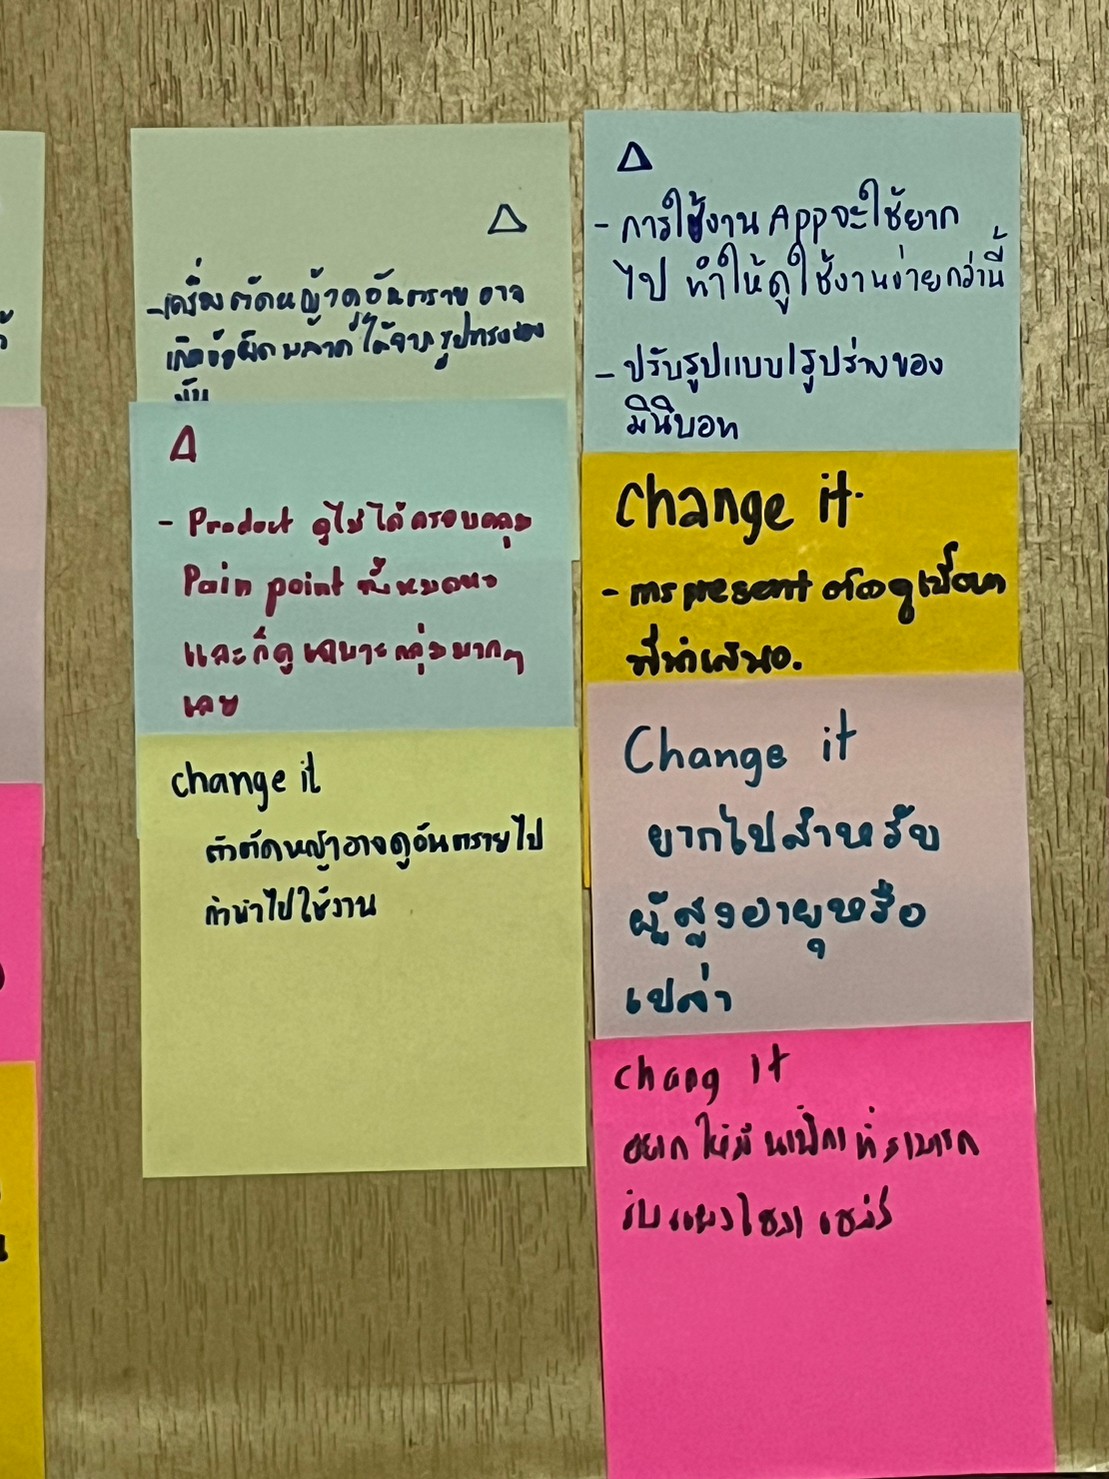 Δ
- เครื่องตัดหญ้าดูอันตราย อาจ
เกิดข้อผิดพลาดได้จากรูปทรงของ
มัน
Δ
- Product ดูไม่ได้ครอบคลุม
Pain point ทั้งหมด
และก็ดูเฉพาะกลุ่มมากๆ
เลย
change it
ตัวตัดหญ้าอาจดูอันตรายไป
ถ้านำไปใช้งาน
Δ
- การใช้งาน Appจะใช้ยาก
ไป ทำให้ดูใช้งานง่ายกว่านี้
- ปรับรูปแบบ/รูปร่างของ
มินิบอท
Change it.
- การ present ต้องดูเนื้อหา
ที่นำเสนอ.
Change it
ยากไปสำหรับ
ผู้สูงอายุหรือ
เปล่า
Chang it
อยากให้มี ที่สามารถ
รับแสงโซล่า เซลล์